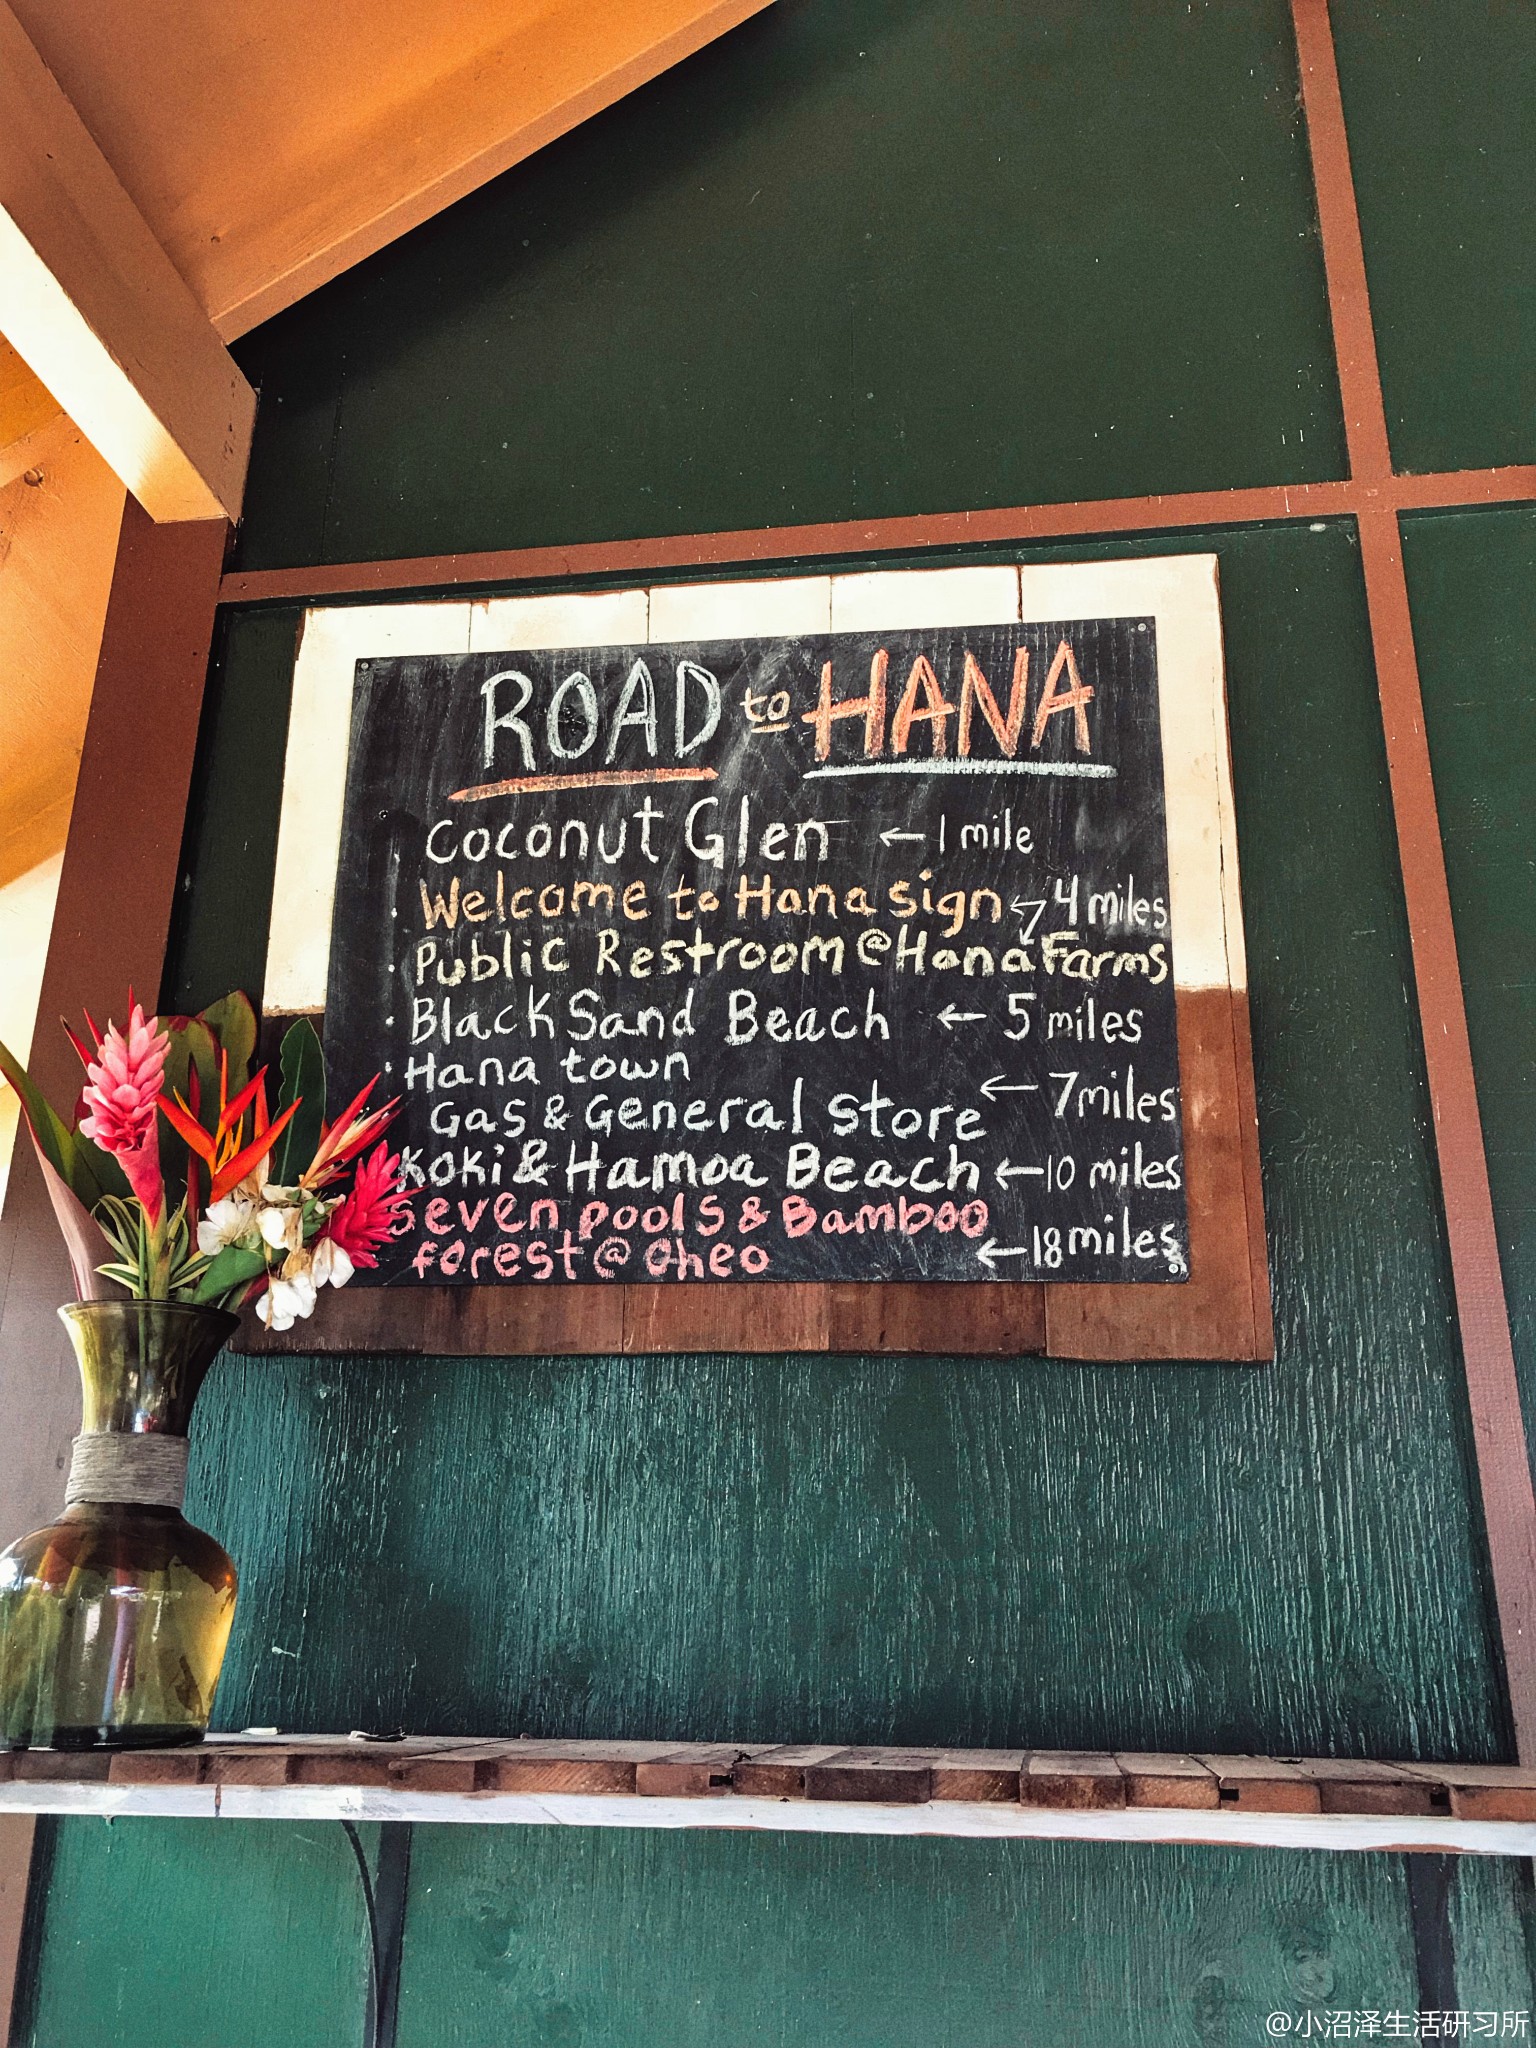 ROAD to HANA
Coconut Glen ← 1 mile
Welcome to Hana sign ← 4 miles
Public Restroom @ Hana Farms
Black Sand Beach ← 5 miles
Hana town
Gas & General store ← 7 miles
Koki & Hamoa Beach ← 10 miles
Seven pools & Bamboo
forest @ Oheo ← 18 miles
@小沼泽生活研习所